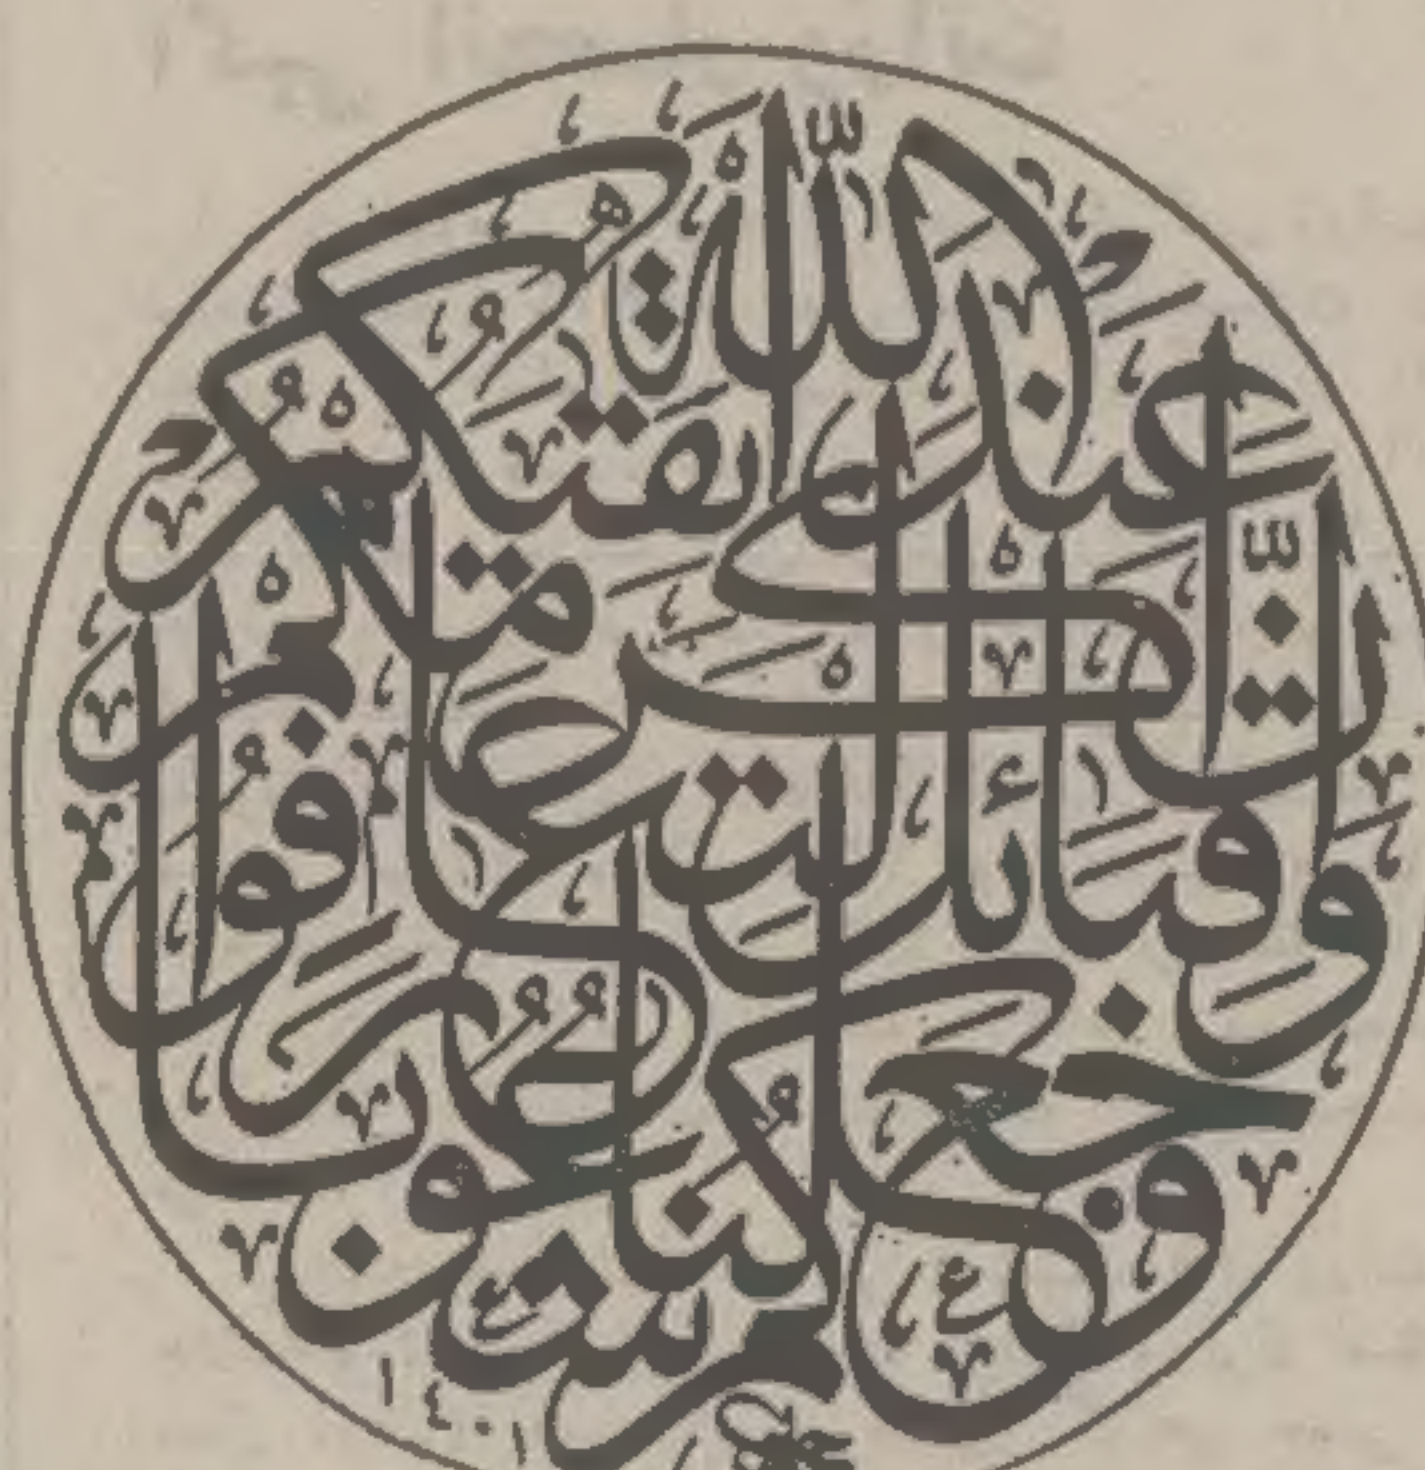 وَجَعَلْنَاكُمْ شُعُوبًا
وَقَبَائِلَ لِتَعَارَفُوا
إِنَّ أَكْرَمَكُمْ
عِنْدَ اللَّهِ أَتْقَىٰكُمْ
١٤٠١